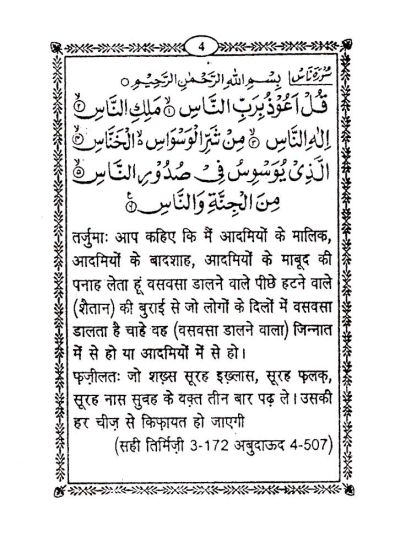 4
سُوْرَةُ نَاسْ بِسْمِ اللهِ الرَّحْمٰنِ الرَّحِيْمِ
قُلْ اَعُوْذُ بِرَبِّ النَّاسِ ۙ﴿۱﴾ مَلِكِ النَّاسِ ۙ﴿۲﴾
اِلٰهِ النَّاسِ ۙ﴿۳﴾ مِنْ شَرِّ الْوَسْوَاسِ ۙ الْخَنَّاسِ ۙ﴿۴﴾
الَّذِیْ يُوَسْوِسُ فِیْ صُدُوْرِ النَّاسِ ۙ﴿۵﴾
مِنَ الْجِنَّةِ وَالنَّاسِ ﴿۶﴾
तर्जुमाः आप कहिए कि मैं आदमियों के मालिक,
आदमियों के बादशाह, आदमियों के माबूद की
पनाह लेता हूं वसवसा डालने वाले पीछे हटने वाले
(शैतान) की बुराई से जो लोगों के दिलों में वसवसा
डालता है चाहे वह (वसवसा डालने वाला) जिन्नात
में से हो या आदमियों में से हो।
फज़ीलतः जो शख़्स सूरह इख़्लास, सूरह फ़लक़,
सूरह नास सुबह के वक़्त तीन बार पढ़ ले। उसकी
हर चीज़ से किफ़ायत हो जाएगी
(सही तिर्मिज़ी 3-172 अबुदाऊद 4-507)